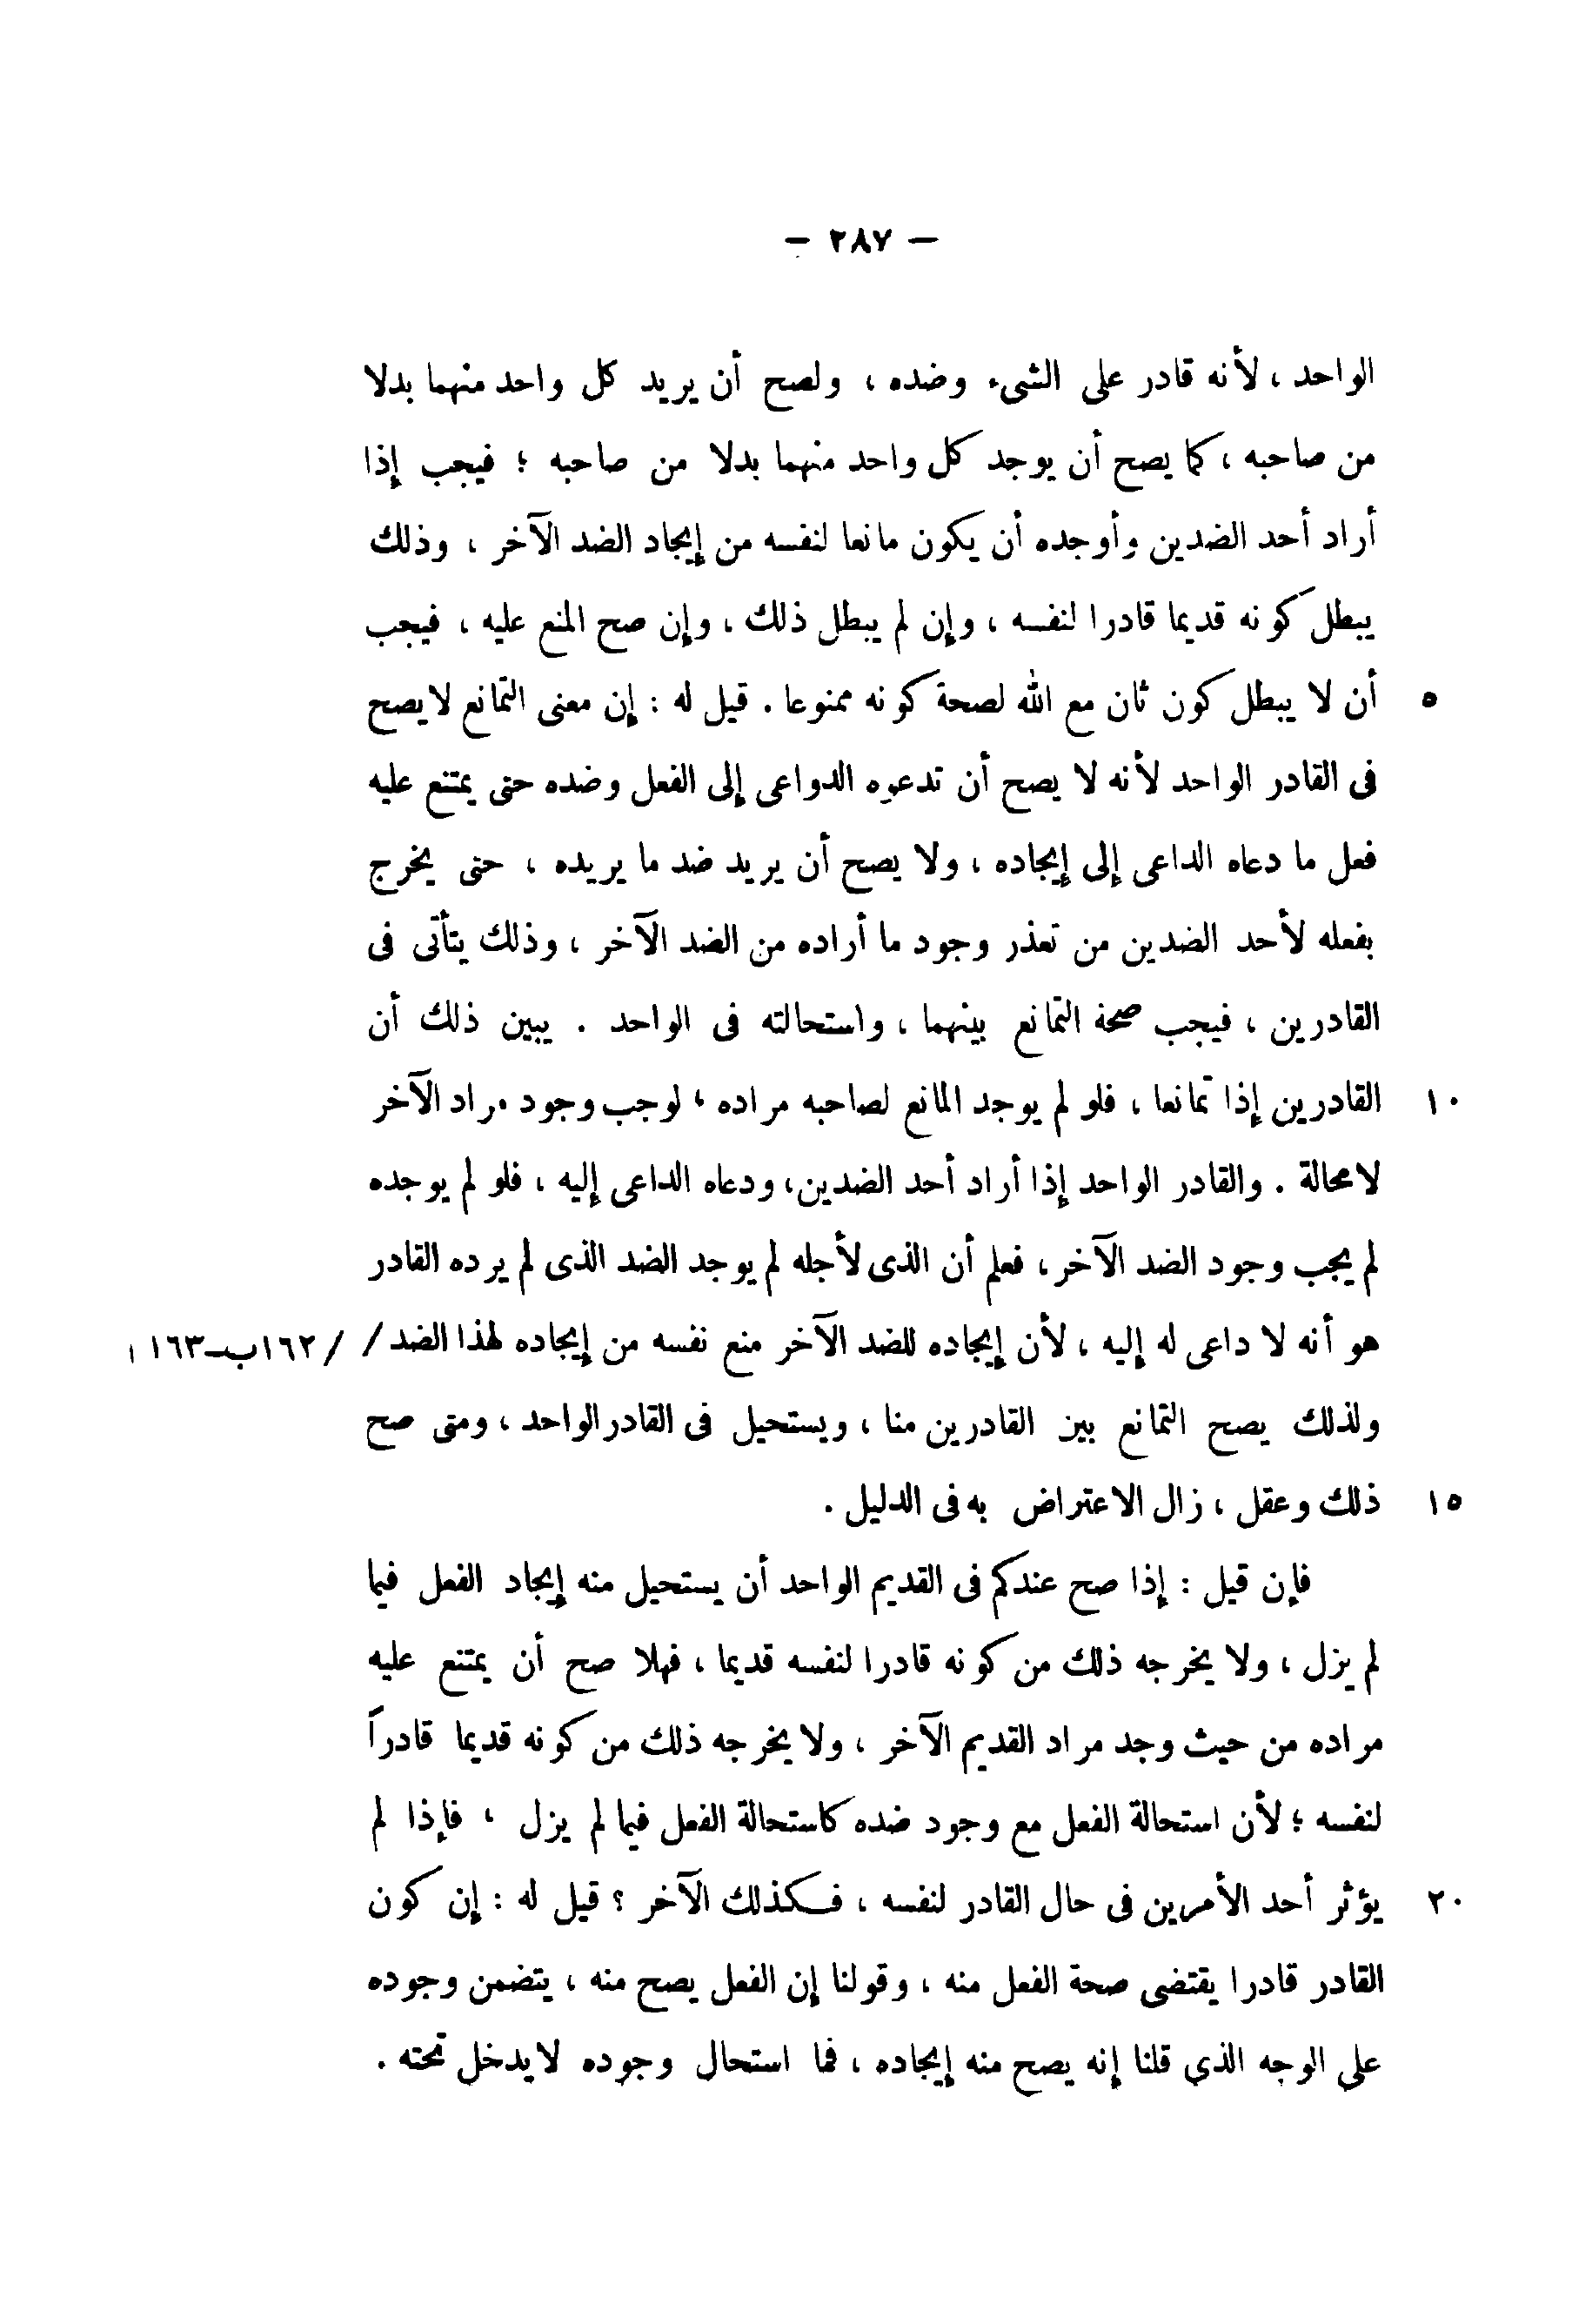 — ٢٨٧ —
الواحد ، لأنه قادر على الشىء وضده ، ولصح أن يريد كل واحد منهما بدلا
من صاحبه ، كما يصح أن يوجد كل واحد منهما بدلا من صاحبه ؛ فيجب إذا
أراد أحد الضدين وأوجده أن يكون مانعا لنفسه من إيجاد الضد الآخر ، وذلك
يبطل كونه قديما قادرا لنفسه ، وإن لم يبطل ذلك ، وإن صح المنع عليه ، فيجب
٥ أن لا يبطل كون ثان مع الله لصحة كونه ممنوعا . قيل له : إن معنى التمانع لا يصح
فى القادر الواحد لأنه لا يصح أن تدعوه الدواعى إلى الفعل وضده حتى يمتنع عليه
فعل ما دعاه الداعى إلى إيجاده ، ولا يصح أن يريد ضد ما يريده ، حتى يخرج
بفعله لأحد الضدين من تعذر وجود ما أراده من الضد الآخر ، وذلك يتأتى فى
القادرين ، فيجب صحة التمانع بينهما ، واستحالته فى الواحد . يبين ذلك أن
١٠ القادرين إذا تمانعا ، فلو لم يوجد المانع لصاحبه مراده ، لوجب وجود مراد الآخر
لا محالة . والقادر الواحد إذا أراد أحد الضدين، ودعاه الداعى إليه ، فلو لم يوجده
لم يجب وجود الضد الآخر ، فعلم أن الذى لأجله لم يوجد الضد الذى لم يرده القادر
هو أنه لا داعى له إليه ، لأن إيجاده للضد الآخر منع نفسه من إيجاده لهذا الضد / / ١٦٢ب-١٦٣ ا
ولذلك يصح التمانع بين القادرين منا ، ويستحيل فى القادر الواحد ، ومتى صح
١٥ ذلك وعقل ، زال الاعتراض به فى الدليل .
فإن قيل : إذا صح عندكم فى القديم الواحد أن يستحيل منه إيجاد الفعل فيما
لم يزل ، ولا يخرجه ذلك من كونه قادرا لنفسه قديما ، فهلا صح أن يمتنع عليه
مراده من حيث وجد مراد القديم الآخر ، ولا يخرجه ذلك من كونه قديما قادراً
لنفسه ؛ لأن استحالة الفعل مع وجود ضده كاستحالة الفعل فيما لم يزل ، فإذا لم
٢٠ يؤثر أحد الأمرين فى حال القادر لنفسه ، فكذلك الآخر ؟ قيل له : إن كون
القادر قادرا يقتضى صحة الفعل منه ، وقولنا إن الفعل يصح منه ، يتضمن وجوده
على الوجه الذى قلنا إنه يصح منه إيجاده ، فما استحال وجوده لا يدخل تحته .